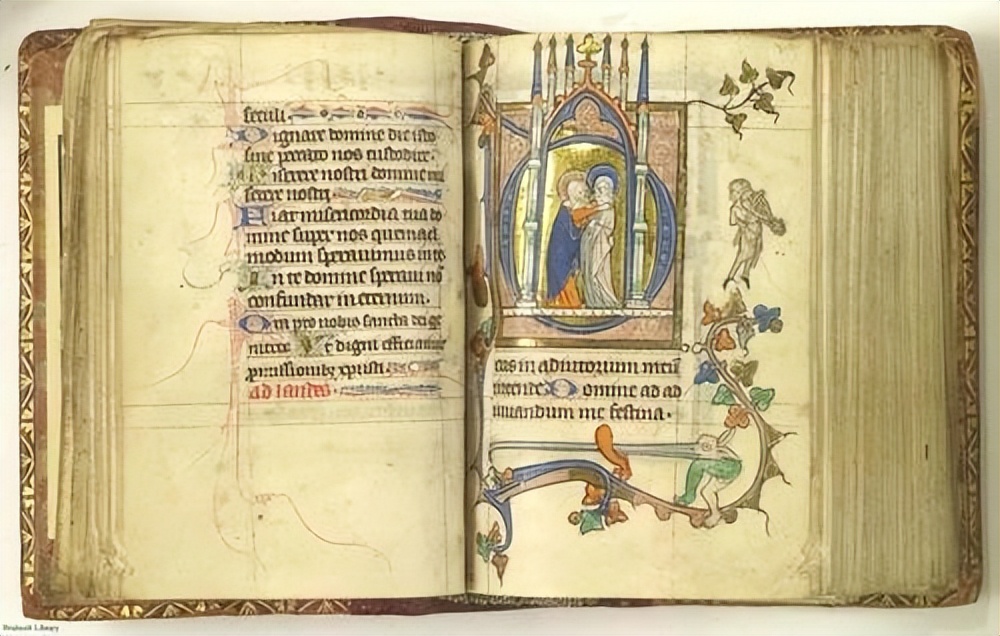 seculi.
Dignare domine die isto
sine peccato nos custodire.
Miserere nostri domine mi
serere nostri
Fiat misericordia tua do
mine super nos quemad
modum speravimus in te
In te domine speravi nō
confundar in eternum.
Ora pro nobis sancta dei ge
nitrix Vt digni efficiamur
ad laudes.
eus in adiutorium meū
intende Domine ad ad
iuuandum me festina.